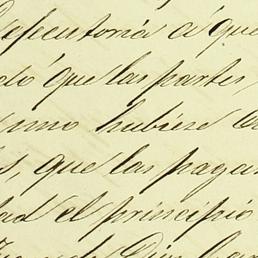 Ejecutoria á que
dó que las partes,
como hubiese
s, que las pagas
dad el principio